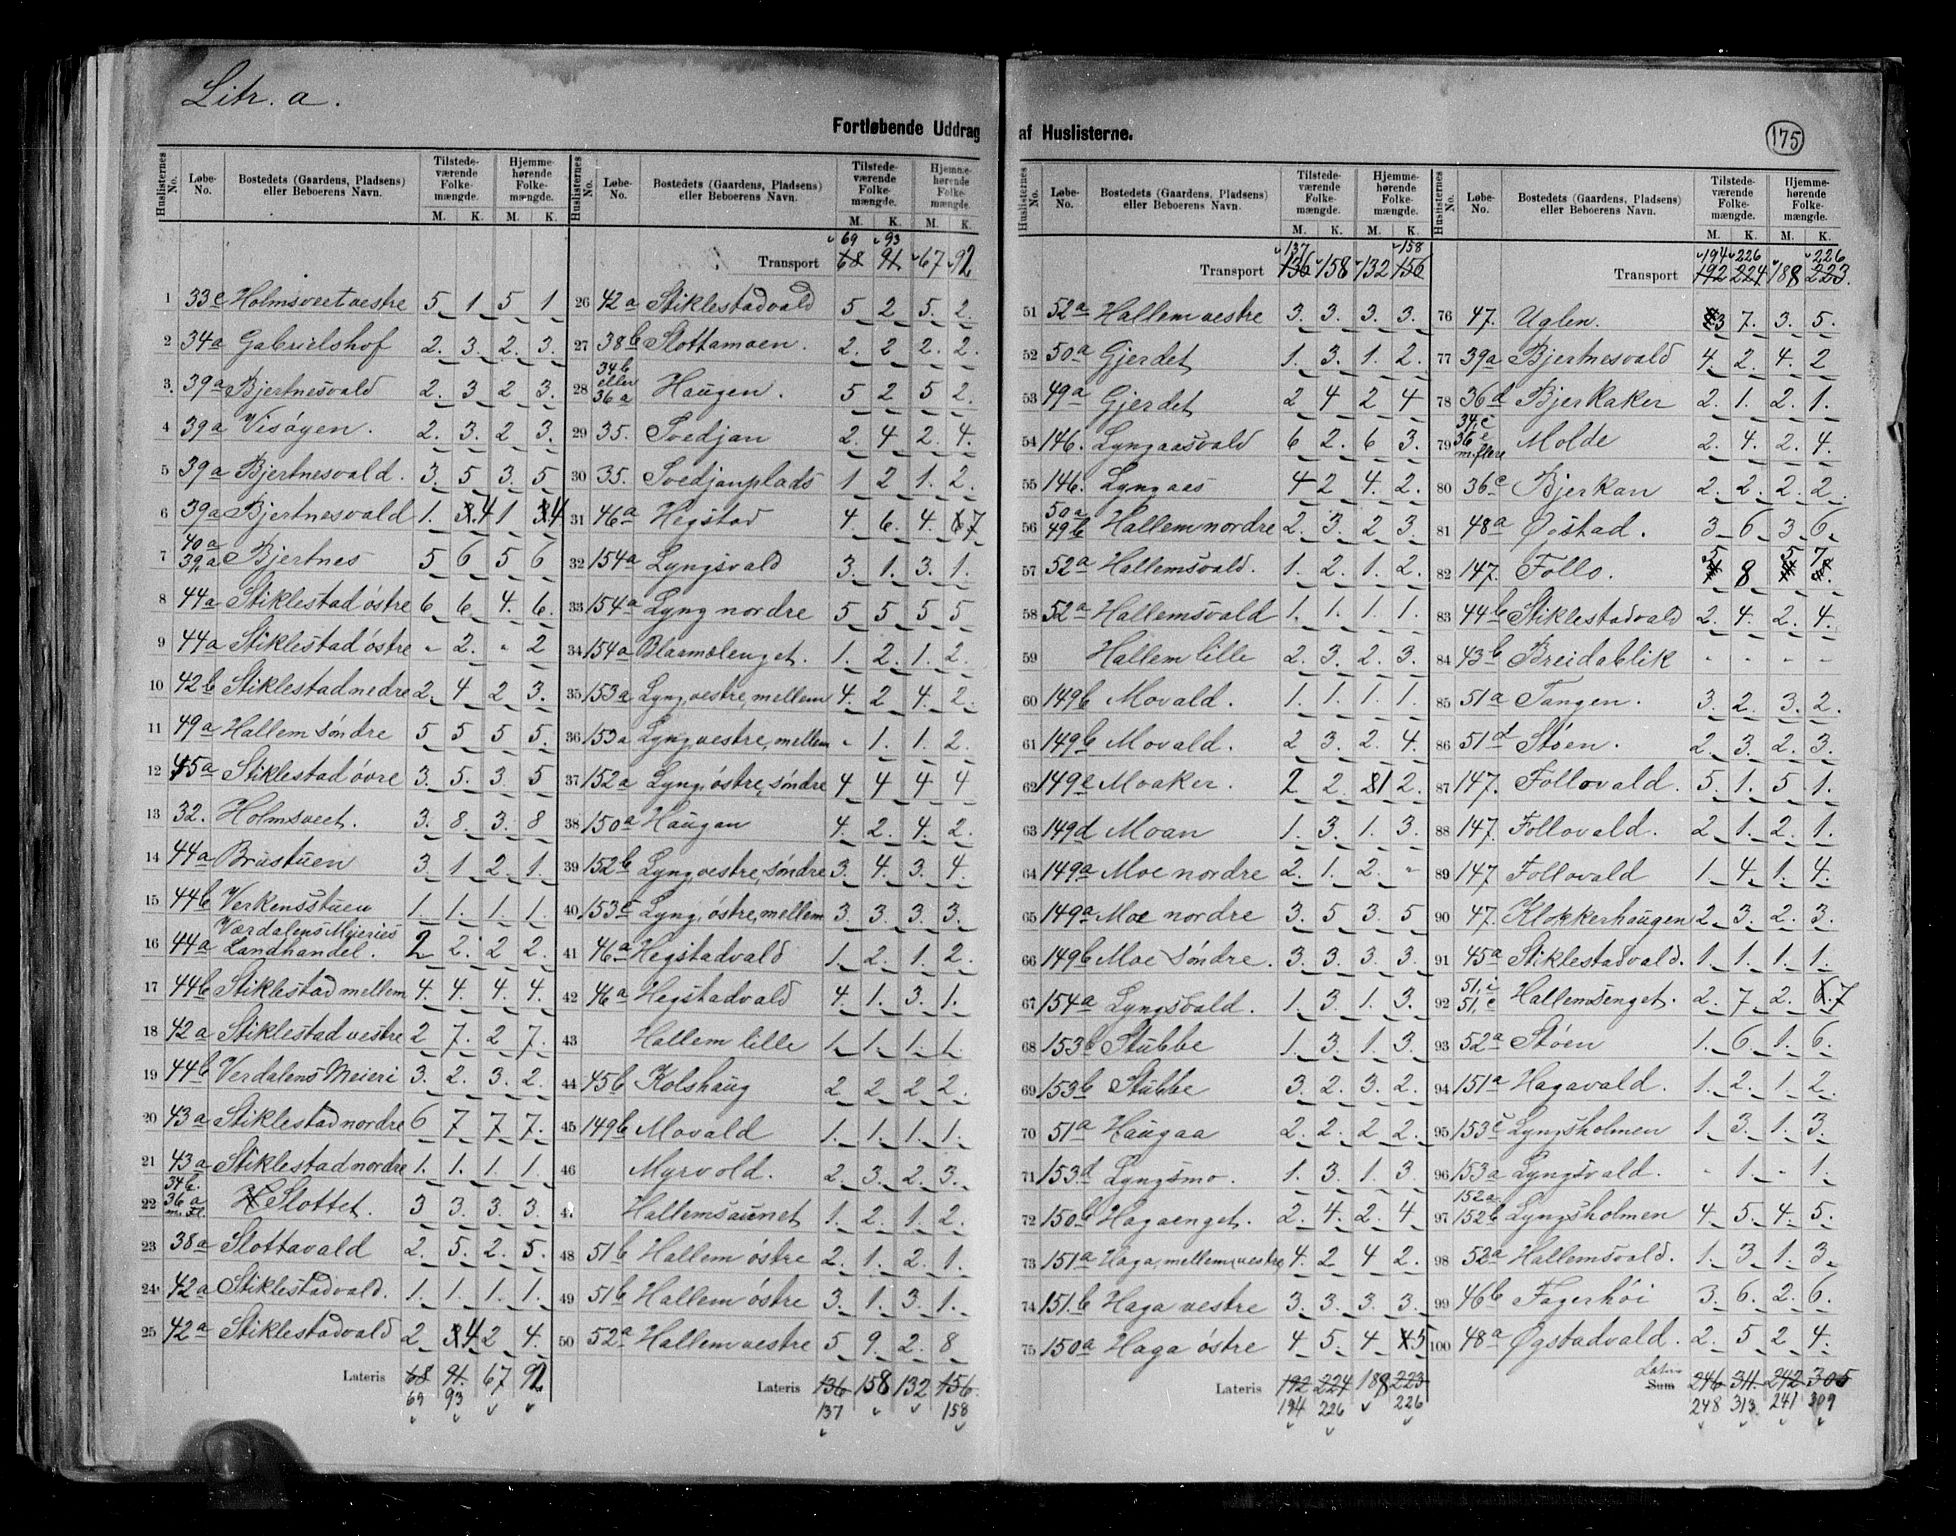 Litr. a.
175
Fortløbende Uddrag af Huslisterne.
Huslisternes No. | Løbe-No. | Bostedets (Gaardens, Pladsens) eller Beboerens Navn. | Tilstedeværende Folkemængde. M. K. | Hjemmehørende Folkemængde. M. K.
1 33c Holmsveet vestre 5 1 5 1
2 34a Gabrielshof 2. 3. 2. 3.
3. 39a Bjertnesvald 2. 3 2 3.
4 39a Visøyen. 2. 3. 2 3.
5 39a Bjertnesvald. 3. 5 3. 5
6 39a Bjertnesvald 1. 3. 4 1 3 4
7 40a 39,a Bjertnes 5 6 5 6
8 44a Stiklestad østre 6 6 4. 6.
9 44a Stiklestad østre " 2. " 2
10 42b Stiklestad nedre 2. 4 2 3.
11 49a Hallem søndre 5 5 5 5.
12 45a Stiklestad øvre 3. 5. 3. 5
13 32. Holmsveet. 3. 8. 3. 8
14 44a Brustuen 3 1 2. 1.
15 44b Verkensstuen 1. 1. 1. 1.
16 44a Værdalens Mejeries Landhandel. 2 2. 2 2.
17 44b Stiklestad mellem 4. 4. 4. 4.
18 42a Stiklestad vestre 2 7. 2 7.
19 44b Verdalens Meieri 3. 2. 3. 2.
20 43a Stiklestad nordre 6 7 7 7.
21 43a Stiklestad nordre 1. 1. 1. 1.
22 34b. 36a m.fl. Slottet. 3 3. 3. 3.
23 38a Slottavald 2. 5. 2. 5.
24 42a Stiklestadvald. 1. 1. 1. 1.
25 42a Stiklestadvald 2 3 4 2 4.
Lateris 68 91. 67 92
69 93
Huslisternes No. | Løbe-No. | Bostedets (Gaardens, Pladsens) eller Beboerens Navn. | Tilstedeværende Folkemængde. M. K. | Hjemmehørende Folkemængde. M. K.
69 93
Transport 68 91 67 92
26 42a Stiklestadvald 5 2 5. 2.
27 38b Slottamoen. 2. 2 2. 2.
28 34b eller 36a Haugen. 5 2 5 2.
29 35. Svedjan 2. 4 2. 4.
30 35. Svedjanplads 1 2 1. 2.
31 46a Hegstad 4. 6. 4. 6 7
32 154a Lyngsvald 3. 1. 3. 1.
33 154a Lyng nordre 5 5 5 5
34 154a Blarmelenget. 1. 2. 1. 2.
35 153a Lyng, vestre, mellem 4. 2 4. 2.
36 153a Lyng, vestre, mellem " 1. 1. 2.
37 152a Lyng, østre, søndre 4 4 4 4
38 150a Haugan 4. 2. 4. 2.
39 152b Lyng, vestre, søndre 3. 4. 3. 4.
40 153c Lyng, østre, mellem 3. 3. 3. 3.
41 46a Hegstadvald 1. 2. 1. 2.
42 46a Hegstadvald 4. 1. 3. 1.
43 Hallem lille 1. 1. 1. 1.
44 45b Kolshaug 2 2 2 2.
45 149b Movald 1. 1. 1. 1.
46 Myrvold. 2. 3 2. 3.
47 Hallemsaunet 1. 2. 1. 2.
48 51b Hallem østre 2. 1. 2. 1.
49 51b Hallem østre 3. 1. 3. 1.
50 52a Hallem vestre 5 9 2. 8
Lateris 136 158 132 156.
137 158
Huslisternes No. | Løbe-No. | Bostedets (Gaardens, Pladsens) eller Beboerens Navn. | Tilstedeværende Folkemængde. M. K. | Hjemmehørende Folkemængde. M. K.
137 158
Transport 136 158 132 156
51 52a Hallem vestre 3. 3. 3. 3.
52 50a Gjerdet 1. 3. 1. 2.
53 49a Gjerdet 2 4 2 4
54 146. Lyngaasvald 6 2. 6 3.
55 146. Lyngaas 4 2 4. 2.
56 50a 49b Hallem nordre 2. 3. 2 3.
57 52a Hallemsvald. 1. 2 1. 2.
58 52a Hallemsvald 1. 1. 1. 1.
59 Hallem lille 2. 3. 2. 3.
60 149b Movald. 1. 1. 1. 1.
61 149b Movald. 2 3. 2. 4.
62 149c Moaker. 2 2. 2 1 2.
63 149d Moan 1. 3. 1. 3.
64 149a Moe nordre 2. 1. 2. "
65 149a Moe nordre 3. 5 3. 5
66 149b Moe søndre. 3. 3. 3. 3.
67 154a Lyngsvald. 1. 3. 1. 3.
68 153b Stubbe 1. 3. 1. 3.
69 153b Stubbe 3. 2. 3. 2.
70 51a Haugaa 2. 2. 2 2.
71 153d Lyngsmo. 1. 3. 1. 3.
72 150b Hagaenget. 2. 4. 2. 4
73 151a Haga, mellem, vestre 4. 2 4 2.
74 151.b Haga vestre 3. 3. 3. 3.
75 150a Haga østre 4 5. 4 4 5
Lateris 192 224 188 223
194 226 226
Huslisternes No. | Løbe-No. | Bostedets (Gaardens, Pladsens) eller Beboerens Navn. | Tilstedeværende Folkemængde. M. K. | Hjemmehørende Folkemængde. M. K.
194 226 226
Transport 192 224 188 223.
76 47. Uglen. 3 7. 3. 5.
77 39a Bjertnesvald 4. 2. 4. 2
78 36d Bjerkaker 2. 1. 2. 1.
79 34,c 36e m.flere Molde 2. 4. 2. 4.
80 36c Bjerkan 2. 2. 2. 2.
81 48a Øgstad. 3 6 3 6.
82 147. Follo. 5 8 5 7
83 44b Stiklestadvald 2. 4. 2. 4.
84 43b Breidablik " " " "
85 51a Tangen. 3. 2. 3. 2.
86 51d Støen. 2. 3. 2. 3.
87 147. Follovald. 5. 1. 5 1.
88 147. Follovald. 2. 1. 2. 1.
89 147. Follovald 1. 4. 1. 4.
90 47. Klokkerhaugen 2. 3. 2. 3.
91 45a Stiklestadvald. 1. 1. 1. 1.
92 51,i 51,c Hallemsenget. 2. 7 2. 6. 7
93 52a Støen 1. 6. 1. 6.
94 151a Hagavald. 1. 2. 1. 2
95 153c Lyngsholmen 1. 3. 1. 3.
96 153a Lyngsvald. " 1. " 1.
97 152a 152b Lyngsholmen 4. 5. 4. 5.
98 52a Hallemsvald. 1. 3 1. 3.
99 46b Fagerhøi 3. 6. 2. 6.
100 48a Øgstadvald. 2. 5 2. 4.
Lateris Sum 246 311. 242 305
248 313. 241 309